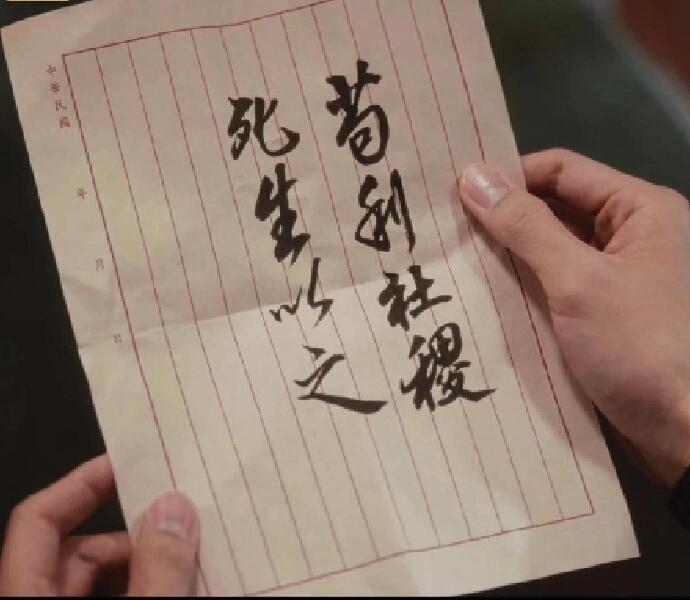 苟利社稷
死生以之
中華民國 年 月 日